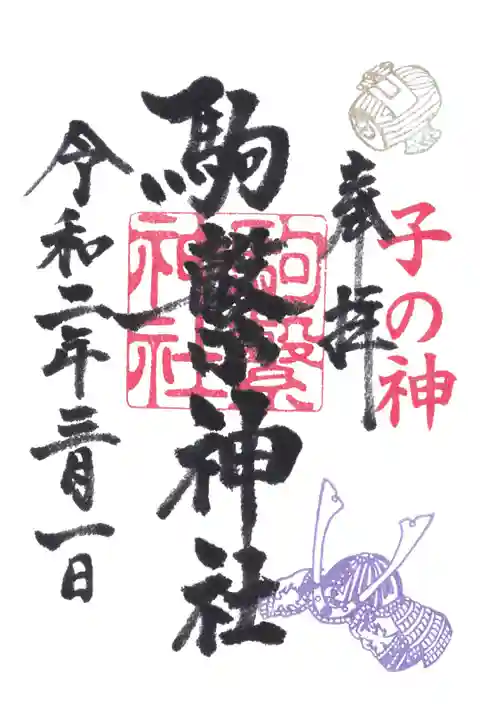 子の神
奉拝
駒繋神社
駒繋
神社
令和二年三月一日